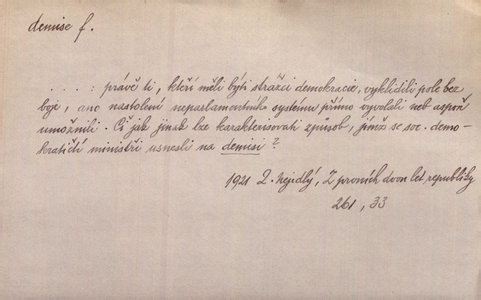 demise f.
. . . . : právě ti, kteří měli býti strážci demokracie, vyklidili pole bez
boje, ano nastolení neparlamentního systému přímo vyvolali neb aspoň
umožnili. Či jak jinak lze karakterisovati způsob, jímž se soc. demo-
kratičtí ministři usnesli na demisi?
1921 Z. Nejedlý, Z prvních dvou let republiky
261, 33